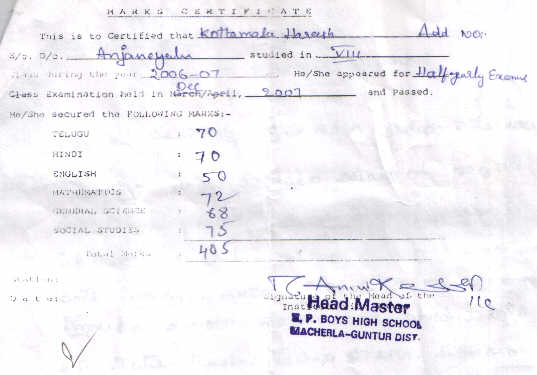 MARKS CERTIFICATE
This is to Certified that Kottamala Haresh Add No.
S/o. D/o. Anjaneyalu studied in VIII
Class during the year 2006-07 He/She appeared for Half-yearly Exams
Class Examination held in Dec March/April, 2007 and Passed.
He/She secured the FOLLOWING MARKS:-
TELUGU : 70
HINDI : 70
ENGLISH : 50
MATHEMATICS : 72
GENERAL SCIENCE : 68
SOCIAL STUDIES : 75
Total Marks : 405
Station:
Date:
Signature of the Head of the
Institution
I/C
Head Master
Z. P. BOYS HIGH SCHOOL
MACHERLA-GUNTUR DIST.